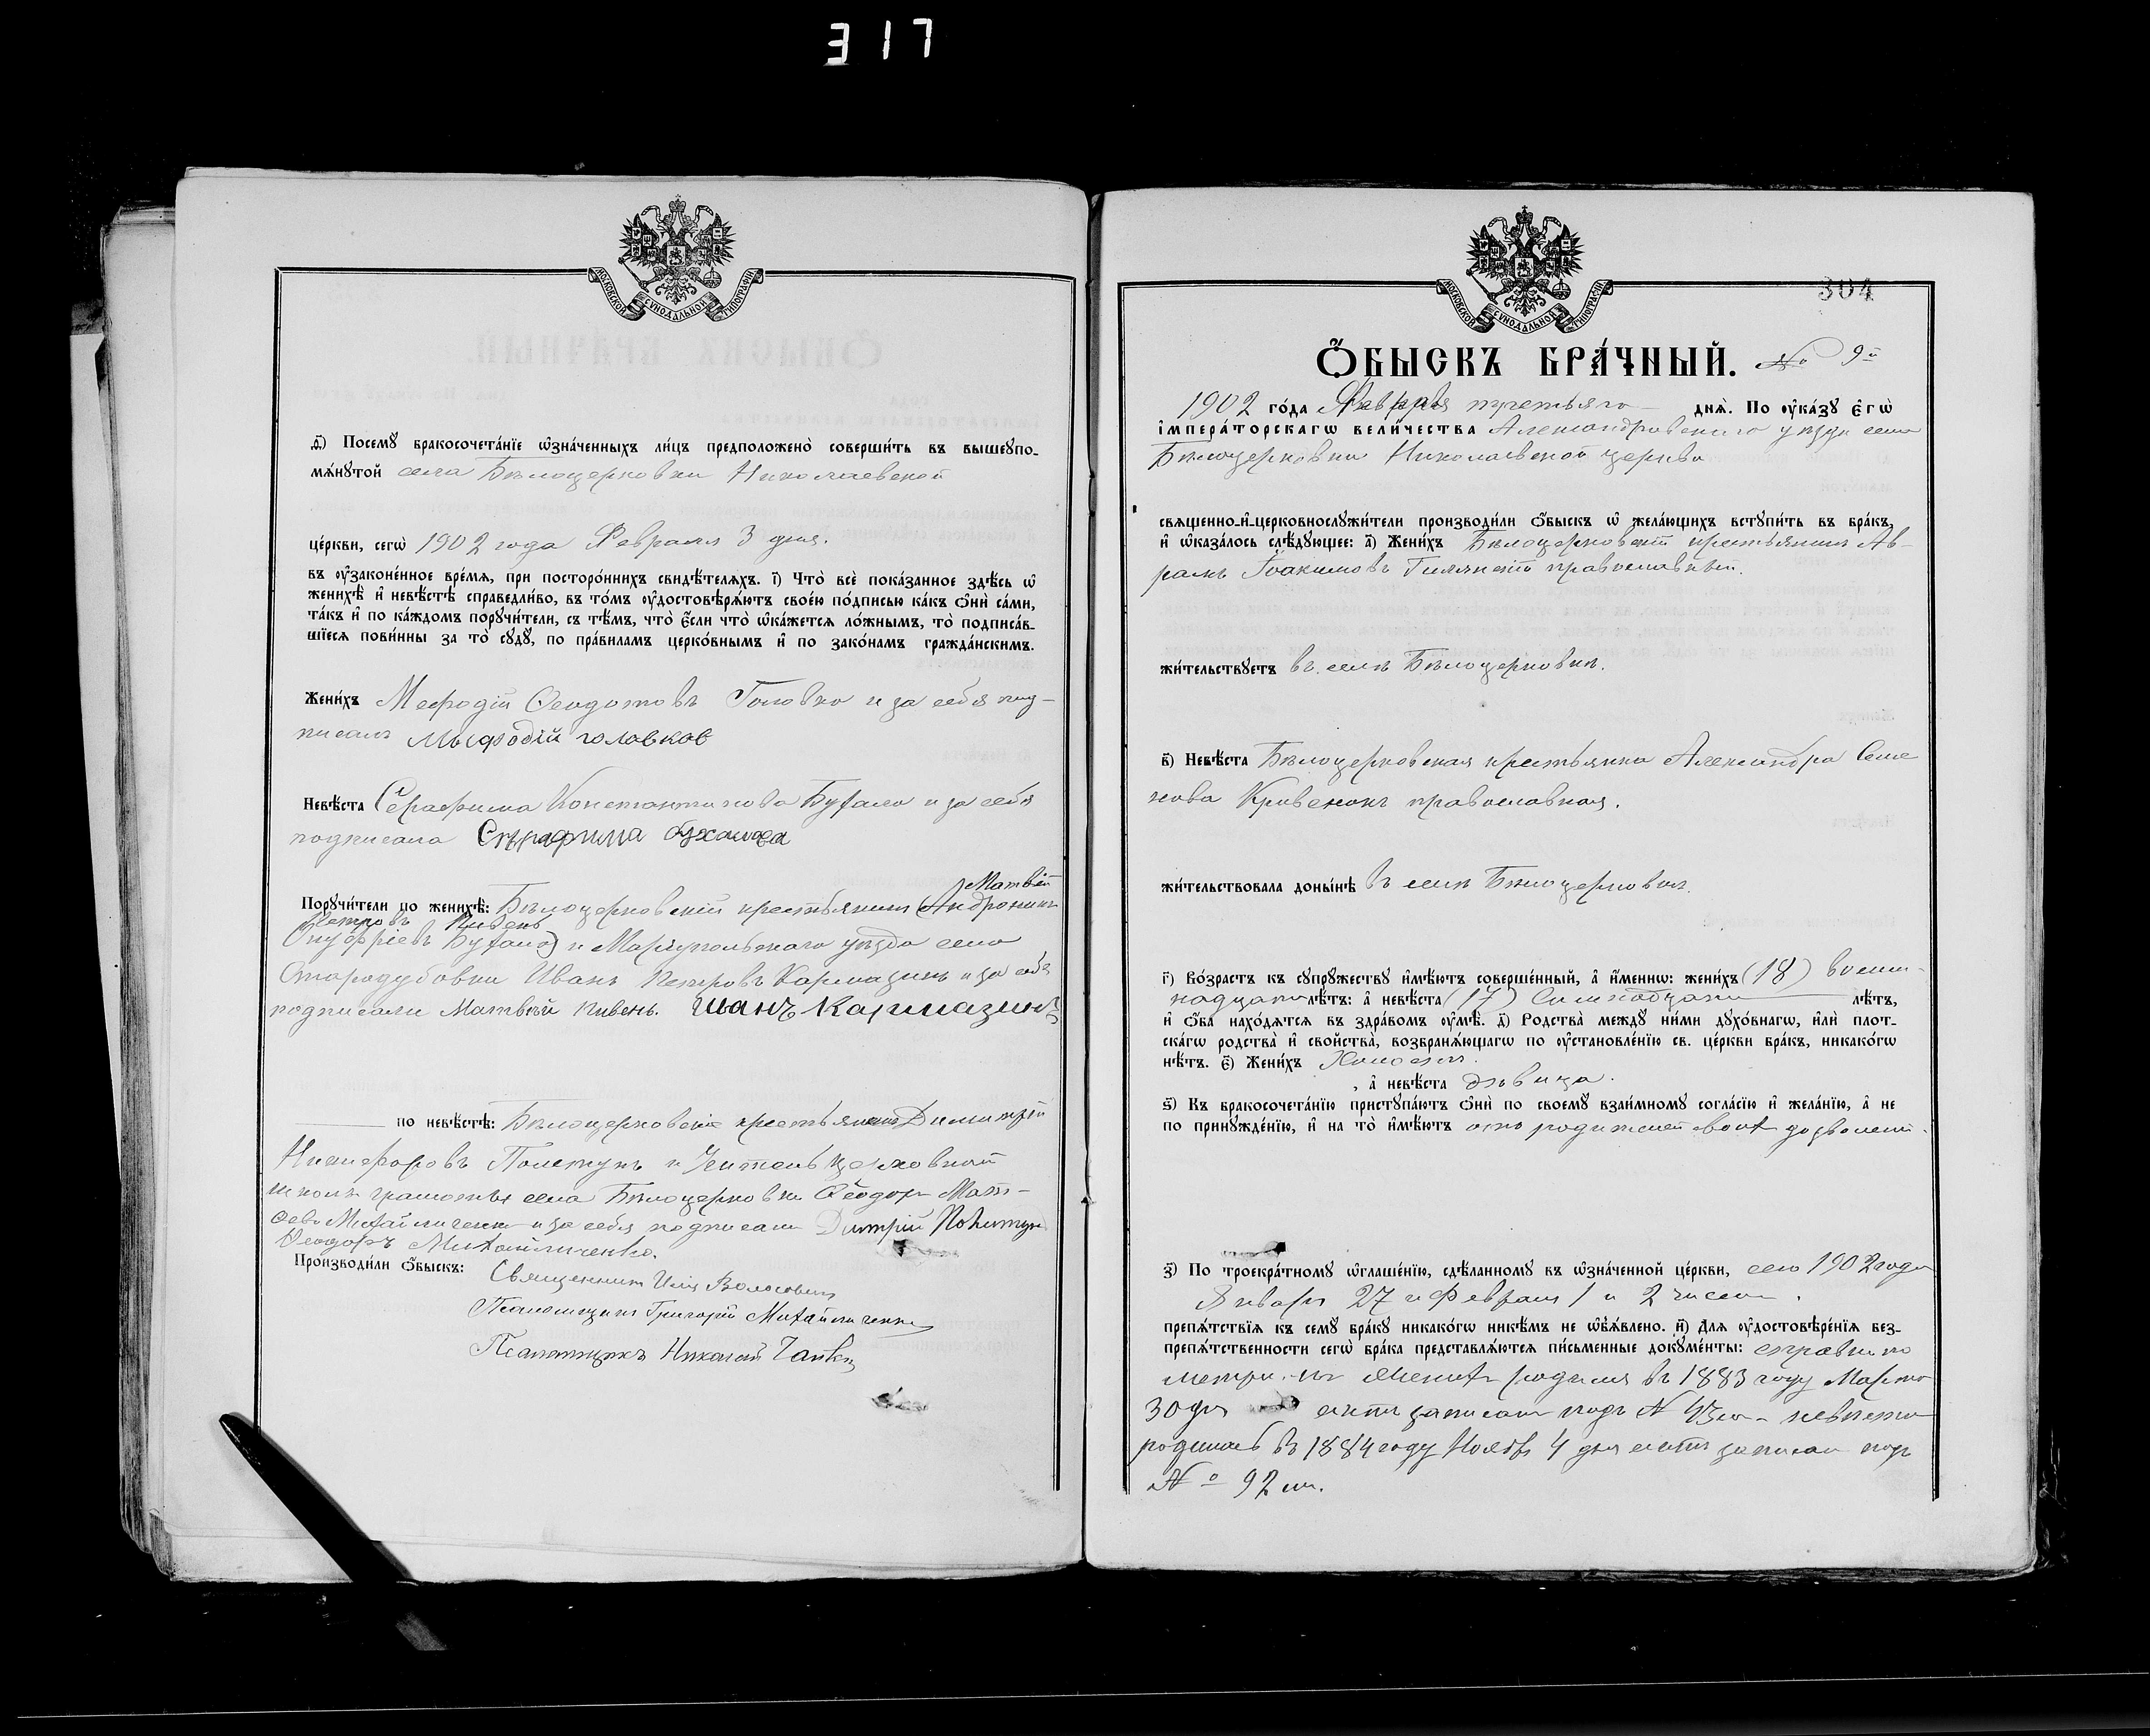 317
МОСКОВСКОЙ СѴНОДАЛЬНОЙ ТИПОГРАФІИ
д҃і) Посемꙋ̀ бракосочета́нїе ѡ҆зна́ченныхъ ли́цъ предположено̀ соверши́ть въ вышеꙋпо-
мѧ́нꙋтой села Бѣлоцерковки Николаевской
це́ркви, сегѡ̀ 1902 года Февраля 3 дня.
въ ᲂу҆законе́нное вре́мѧ, при посторо́ннихъ свидѣ́телѧхъ. і҃) Что̀ всѐ пока́занное здѣ́сь ѡ҆
женихѣ̀ и҆ невѣ́стѣ справедли́во, въ то́мъ ᲂу҆достовѣрѧ́ютъ свое́ю по́дписью ка́къ ѻ҆нѝ са́ми,
та́къ и҆ по ка́ждомъ порꙋчи́тели, съ тѣ́мъ, что̀ є҆́сли что̀ ѡ҆ка́жетсѧ ло́жнымъ, то̀ подписа́в-
шїесѧ пови́нны за то̀ сꙋдꙋ̀, по пра́виламъ церко́внымъ и҆ по зако́намъ гражда́нскимъ.
Жени́хъ Мефодій Ѳеодотовъ Головко и за себя под-
писалъ Мыфодій головков
Невѣ́ста Серафима Константинова Бухало и за себя
подписала Сърафима бухалова
Матвѣй
Порꙋчи́тели по женихѣ̀: Бѣлоцерковскій крестьянинъ (Андроникъ
Петровъ Кивень
Онуфріевъ Бухало) и Маріупольскаго уѣзда села
Стародубовки Иванъ Петровъ Кармазинъ и за себя
подписали Матвѣй Кивень. Иванъ Кармазинъ
по невѣ́стѣ: Бѣлоцерковскіе крестьянинъ Димитрій
Никифоровъ Полетунъ и Учитель церковной
школы грамоты села Бѣлоцерковки Ѳеодоръ Мат-
ѳевъ Михайличенко и за себя подписали Дмитрій
Ѳеодоръ Михайличенко.
Производи́ли ѻ҆́быскъ: Священникъ Илія Волосовичъ
Псаломщикъ Григорій Михайличенко
Псаломщикъ Николай
МОСКОВСКОЙ СѴНОДАЛЬНОЙ ТИПОГРАФІИ
304
Ѻ҆́БЫСКЪ БРА́ЧНЫЙ. № 9й
1902 го́да Февраля третьяго днѧ̀. По ᲂу҆ка́зꙋ є҆гѡ̀
і҆мпера́торскагѡ вели́чества Александровскаго уѣзда села
Бѣлоцерковки Николаевской церкви
свѧще́нно-и҆-церковнослꙋжи́тели производи́ли ѻ҆́быскъ ѡ҆ жела́ющихъ встꙋпи́ть въ бра́къ,
и҆ ѡ҆каза́лось слѣ́дꙋющее: а҃) Жени́хъ Бѣлоцерковскій крестьянинъ Ав-
рамъ Іоакимовъ Гилянскій православный.
жи́тельствꙋетъ въ селѣ Бѣлоцерковкѣ.
в҃) Невѣ́ста Бѣлоцерковская крестьянка Александра Семе
нова Кривенокъ православная.
жи́тельствовала доны́нѣ въ селѣ Бѣлоцерковкѣ.
г҃) Во́зрастъ къ сꙋпрꙋ́жествꙋ и҆мѣ́ютъ соверше́нный, а҆ и҆́меннѡ: жени́хъ (18) восем-
надцати лѣ́тъ: а҆ невѣ́ста (17) Семнадцати лѣ́тъ,
и҆ ѻ҆́ба нахо́дѧтсѧ въ здра́вомъ ᲂу҆мѣ̀. д҃) Родства̀ междꙋ̀ ни́ми дꙋхо́внагѡ, и҆лѝ пло́т-
скагѡ родства̀ и҆ сво́йства, возбранѧ́ющагѡ по ᲂу҆становле́нїю св. це́ркви бра́къ, никако́гѡ
нѣ́тъ. є҃) Жени́хъ Холостъ.
, а҆ невѣ́ста дѣвица.
ѕ҃) Къ бракосочета́нїю пристꙋпа́ютъ ѻ҆нѝ по своемꙋ̀ взаи́мномꙋ согла́сїю и҆ жела́нїю, а҆ не
по принꙋжде́нїю, и҆ на то̀ и҆мѣ́ютъ отъ родителей своихъ дозволеніе.
з҃) По троекра́тномꙋ ѡ҆глаше́нїю, сдѣ́ланномꙋ въ ѡ҆зна́ченной це́ркви, сего 1902 года
Января 27 и Февраля 1 и 2 чиселъ.
препѧ́тствїѧ къ семꙋ̀ бра́кꙋ никако́гѡ никѣ́мъ не ѡ҆б̾ѧ́влено. и҃) Длѧ ᲂу҆достовѣре́нїѧ без-
препѧ́тственности сегѡ̀ бра́ка представлѧ́ютсѧ пи́сьменные докꙋме́нты: справки по
метри. Женихъ родился въ 1883 году Марта
30 дня актъ записанъ подъ № 43м. невѣста
родилась въ 1884 году Ноября 4 дня актъ записан подъ
№ 92 м.